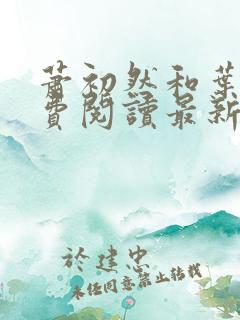 萧初然和葉
費閱讀最新
於建忠
未任同意禁止转载